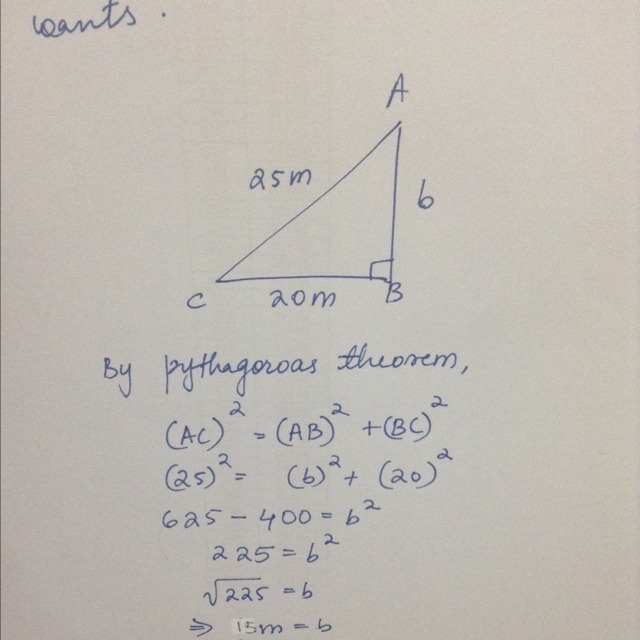 wants.
A
25m
b
C
20m
B
By pythagoroas theorem,
(AC)² = (AB)² + (BC)²
(25)² = (b)² + (20)²
625 - 400 = b²
225 = b²
√225 = b
⇒ 15m = b